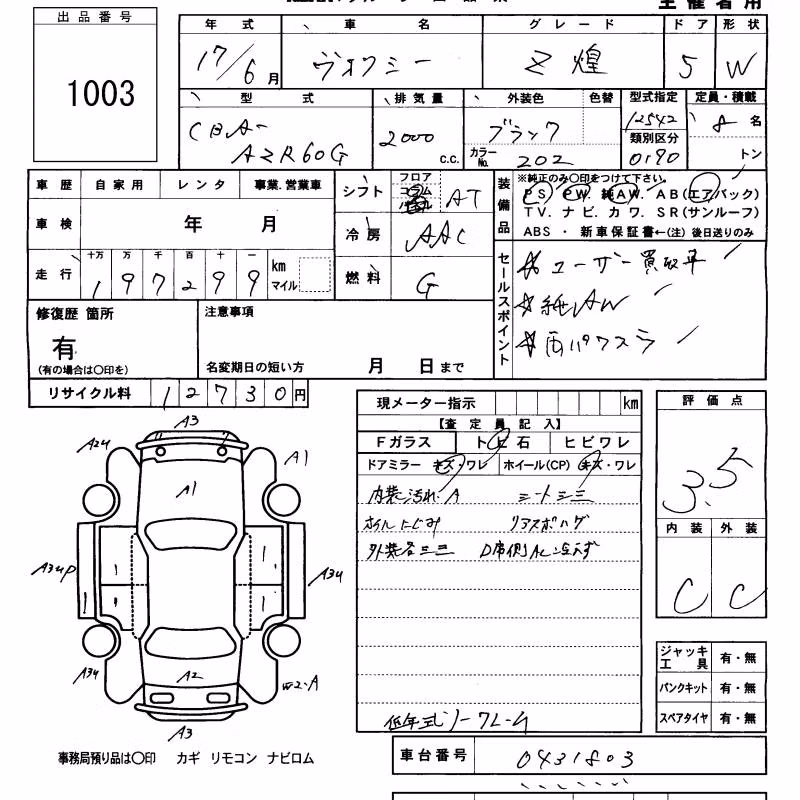 主催者用
出品番号
1003
年式 車名 グレード ドア 形状
17/6月 ヴォクシー Z 煌 5 W
型式 排気量 外装色 色替 型式指定 定員・積載
CBA-
AZR60G
2000 c.c.
ブラック
カラーNo. 202
12542
類別区分
0190
8名
トン
車歴 自家用 レンタ 事業.営業車
車検 年 月
走行 十万 万 千 百 十 一
197299 km マイル
シフト フロア コラム AT
冷房 AAC
燃料 G
装備品
※純正のみ〇印をつけて下さい。
PS PW. 純AW. AB(エアバック)
TV. ナビ. カワ. SR(サンルーフ)
ABS ・ 新車保証書←(注) 後日送りのみ
セールスポイント
☆ ユーザー買取車
☆ 純AW
☆ 両パワスラ
修復歴 箇所
有
(有の場合は〇印を)
注意事項
名変期日の短い方 月 日まで
リサイクル料 12730円
現メーター指示 km
【査定員記入】
Fガラス トビ石 ヒビワレ
ドアミラー キズ・ワレ ホイール(CP) キズ・ワレ
内装汚れ・A シートシミ
ホイルにじみ リアスポハゲ
外装各キズ D席側AC
低年式ノークレーム
評価点
3.5
内装 外装
C C
ジャッキ
工具 有・無
パンクキット 有・無
スペアタイヤ 有・無
車台番号 0431803
A3
A2U
A1
A1
A3UP
A3U
A3U
A2
W2・A
A3
事務局預り品は〇印 カギ リモコン ナビロム